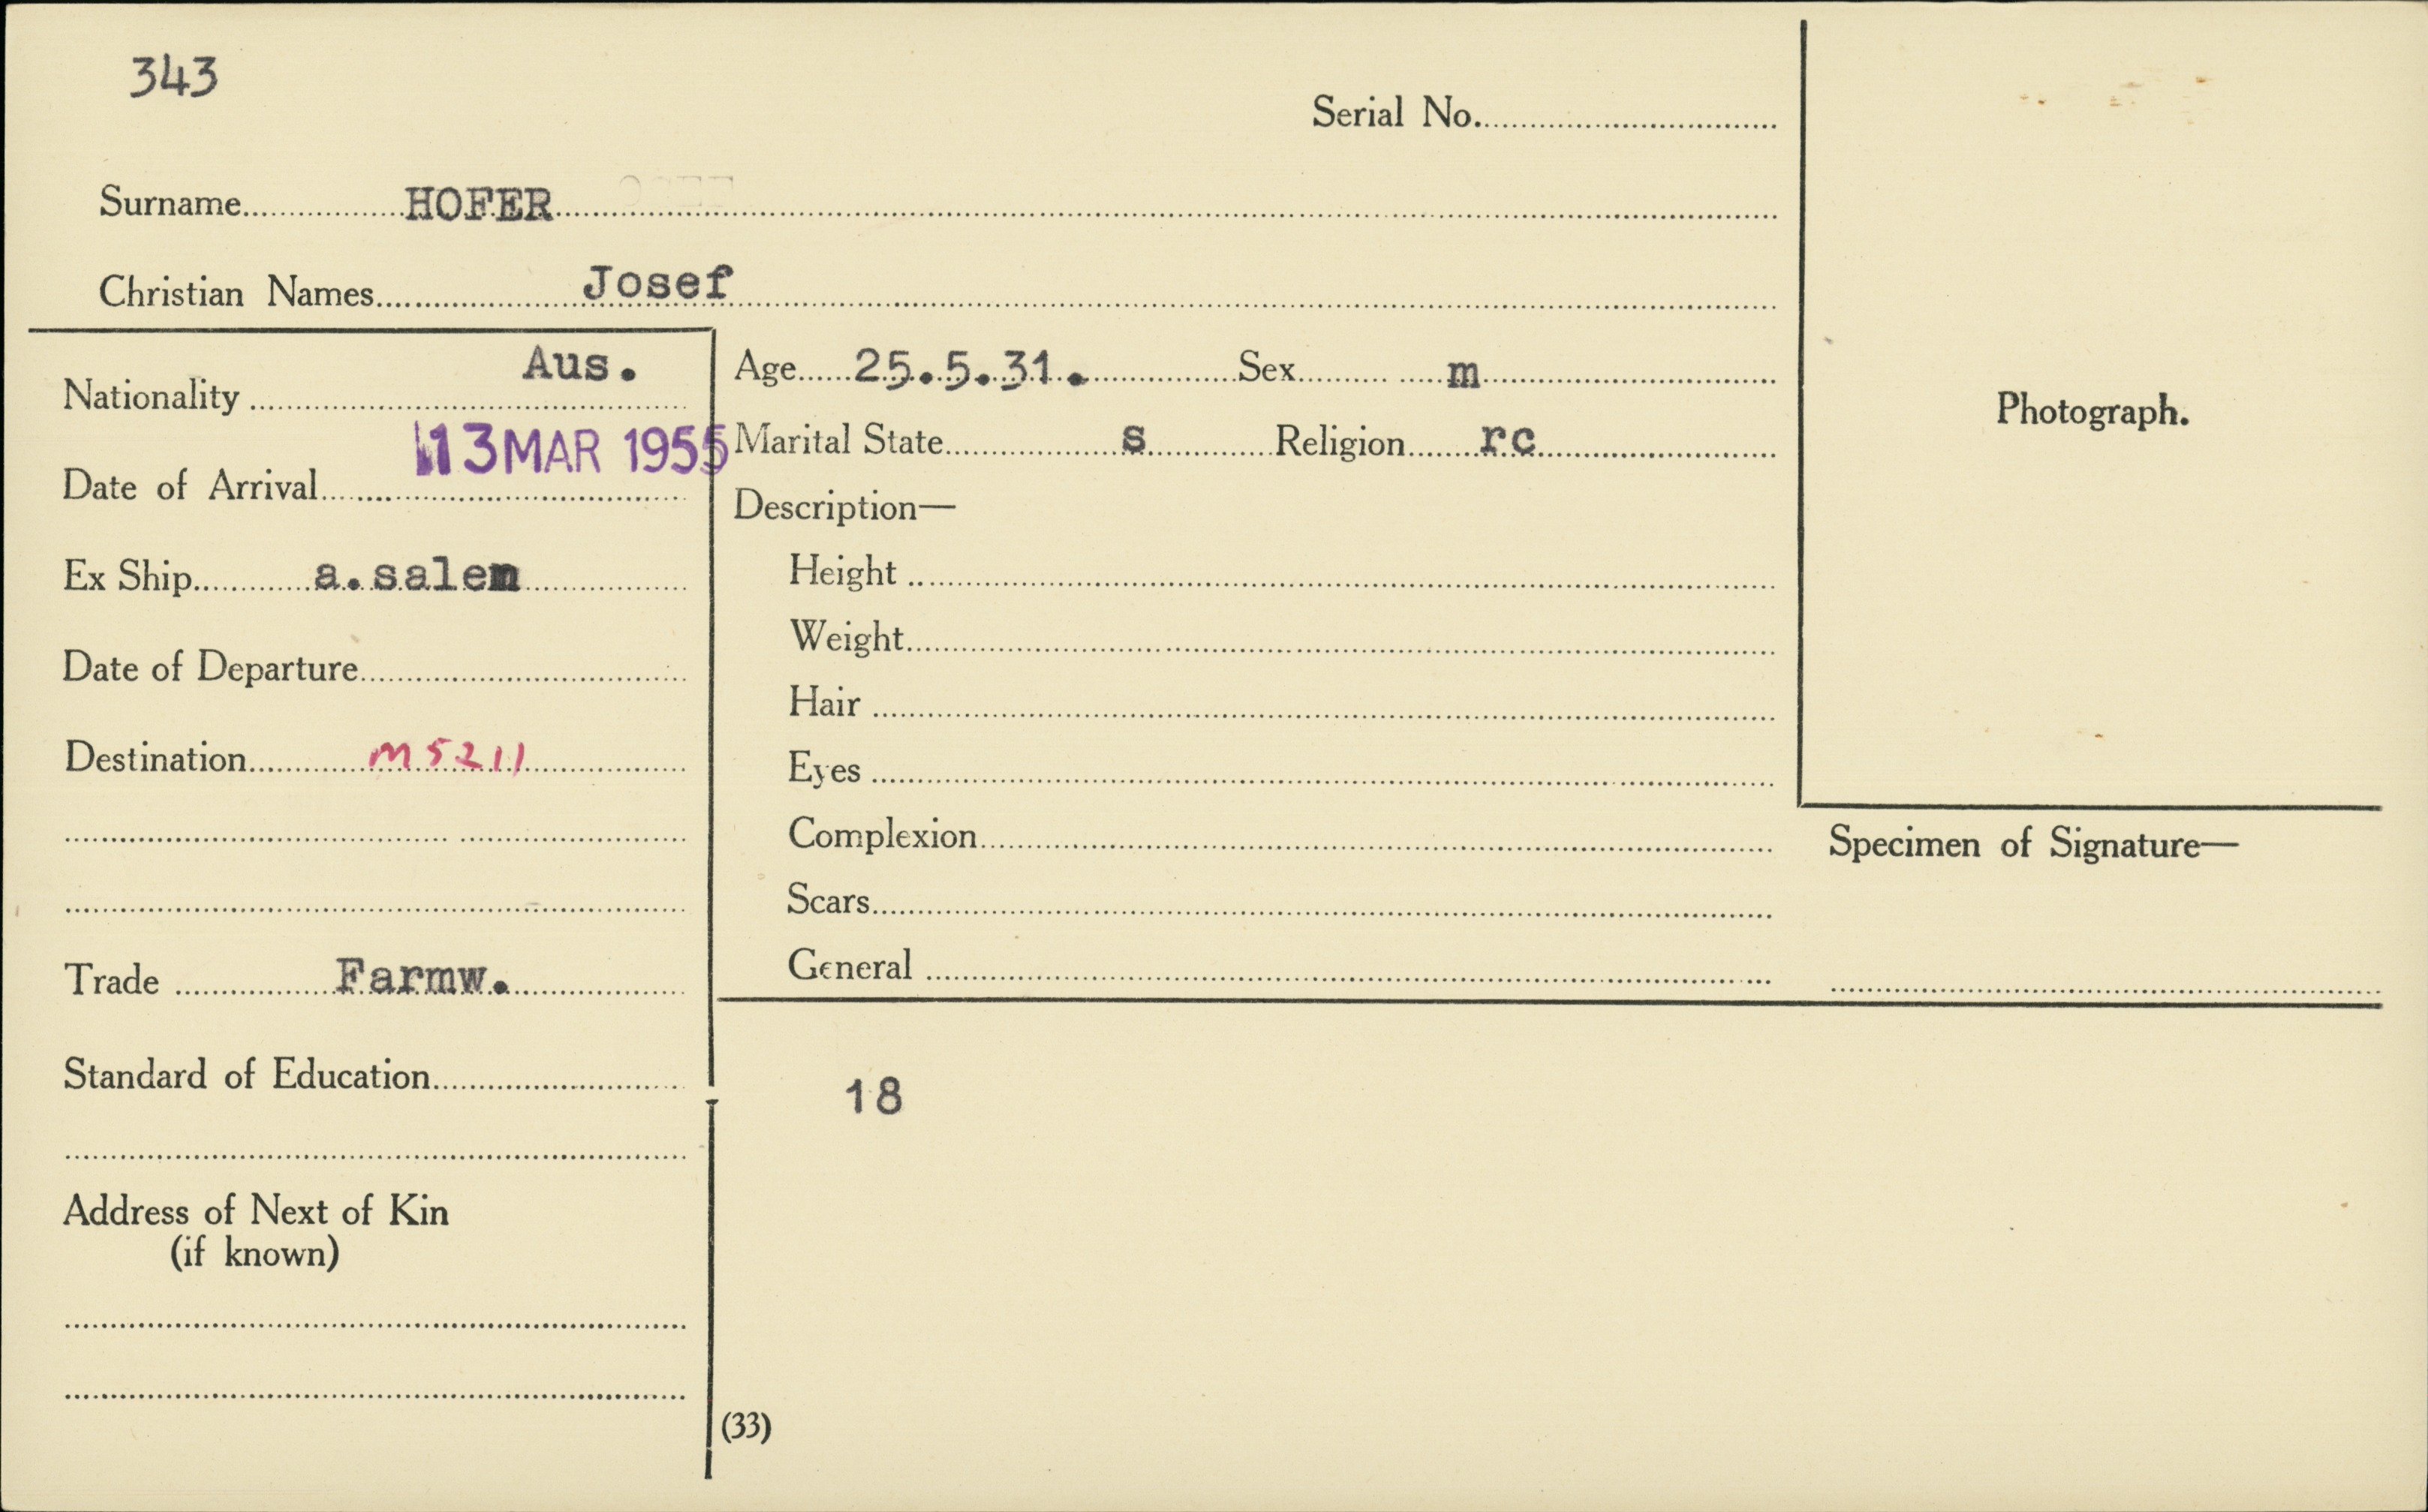 343
Serial No.
Surname HOFER
Christian Names Josef
Nationality Aus.
Date of Arrival 13 MAR 1955
Ex Ship a.salem
Date of Departure
Destination M5211
Trade Farmw.
Standard of Education
Address of Next of Kin
(if known)
Age 25.5.31. Sex m
Marital State s Religion rc
Description—
Height
Weight
Hair
Eyes
Complexion
Scars
General
18
(33)
Photograph.
Specimen of Signature—